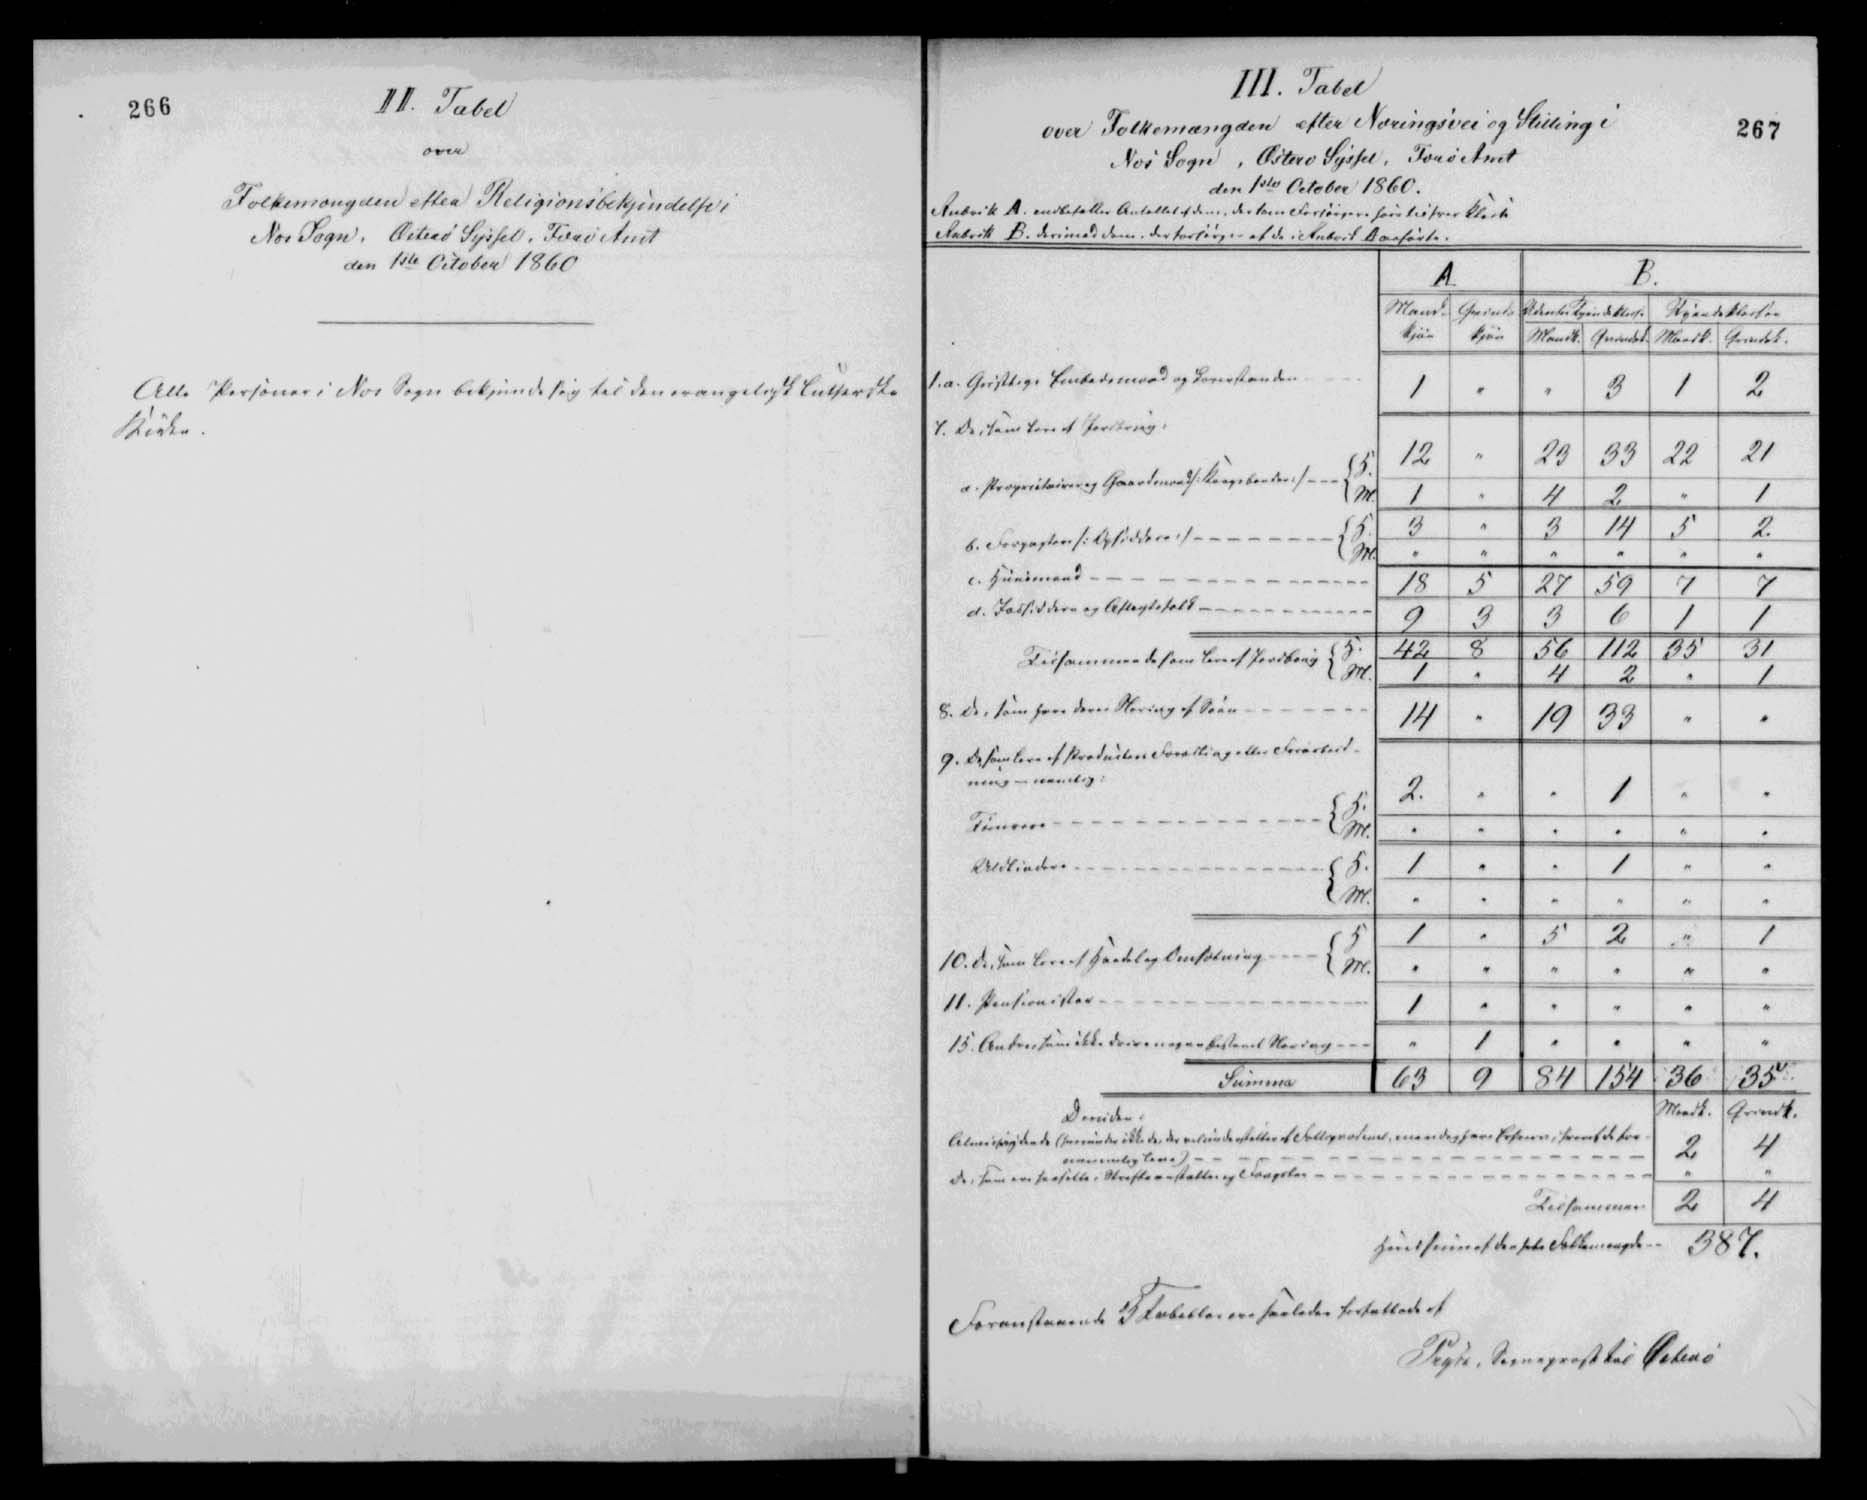 266
II. Tabel
over
Folkemængden efter Religionsbekjendelse i
Nes Sogn, Österö Syssel, Færö Amt
den 1ste October 1860
Alle Personer i Nes Sogn bekjende sig til den evangelisk lutherske
Kirke.
III. Tabel
267
over Folkemængden efter Næringsvei og Stilling i
Nes Sogn, Österö Syssel, Færö Amt
den 1ste October 1860.
Rubrik A. indbefatter Antallet af dem, der som Forsörgere
Rubrik B. derimod dem, der forsörges af de i Rubrik A anförte.
A B.
Mand- Qvinde- Udenfor Tyendeklass. Tyendeklassen
kjön kjön Mandk. Qvindek. Mandk. Qvindek.
1.a. Geistlige Embedsmænd og 1 " " 3 1 2
7. De, som leve af Jordbrug:
a. Proprietairer og Gaardmænd /: Kongsbönder :/ F. 12 " 23 33 22 21
M. 1 " 4 2 " 1
b. Forpagtere /: :/ F. 3 " 3 14 5 2.
M. " " " " " "
c. Huusmænd 18 5 27 59 7 7
d. Inderster og Aftægtsfolk 9 3 3 6 1 1
Tilsammen de som leve af Jordbrug F. 42 8 56 112 35 31
M. 1 " 4 2 " 1
8. De, som have deres Næring af Söen 14 " 19 33 " "
9. De som leve af Producters Forædling eller Forarbeid-
ning – nemlig:
Tömrere F. 2. " " 1 " "
M. " " " " " "
F. 1 " " 1 " "
M. " " " " " "
10. De, som leve af Handel og Omsætning F. 1 " 5 2 " 1
M. " " " " " "
11. Pensionister 1 " " " " "
15. Andre, som ikke drive nogen bestemt Næring " 1 " " " "
Summa 63 9 84 154 36 35
Desuden: Mandk. Qvindk.
Almisselydende
2 4
De, som ere hensatte i Straffeanstalter og Fængsler " "
Tilsammen 2 4
Hovedsum af den hele Folkemængde 387.
Foranstaaende 3 Tabeller ere saaledes forfattede af
Sognepræst til Österö